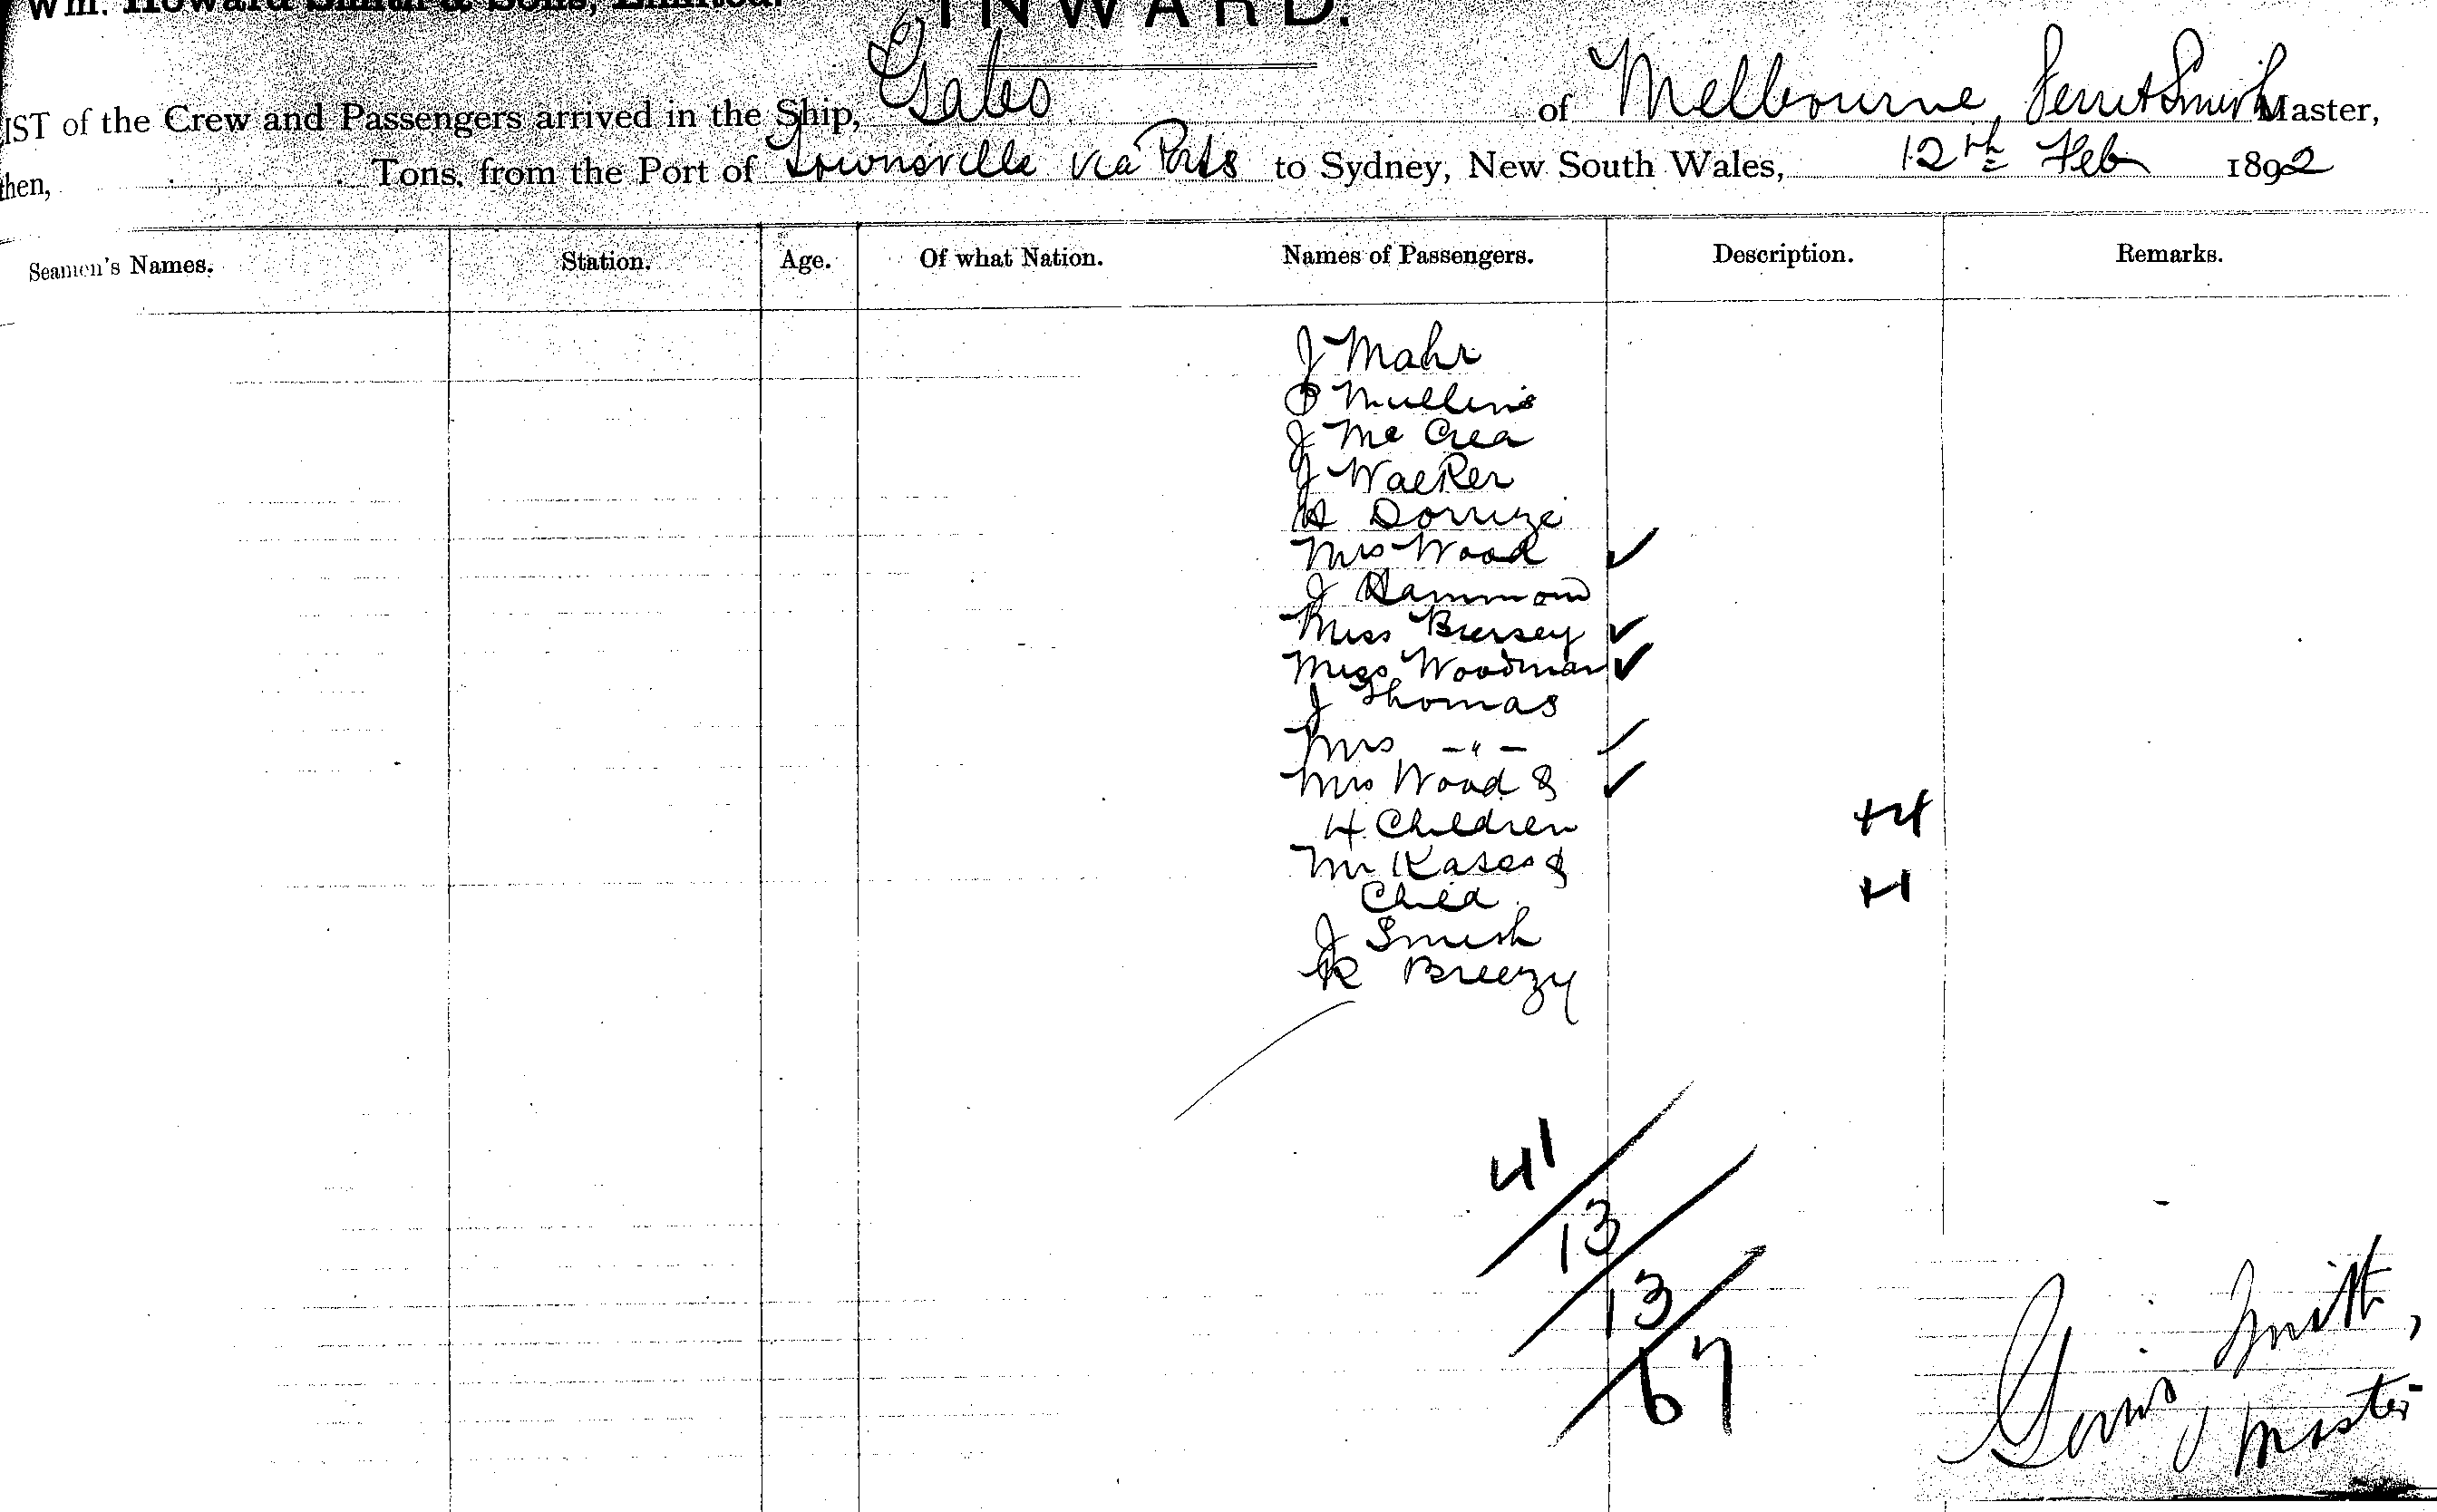 Wm. Howard Smith & Sons, Limited.
INWARD.
LIST of the Crew and Passengers arrived in the Ship, Gabo of Melbourne, Smith Master,
then, Tons, from the Port of Townsville via Ports to Sydney, New South Wales, 12th Feb 1892
Seamen's Names. Station. Age. Of what Nation. Names of Passengers. Description. Remarks.
J Mahr
P Mullins
J Mc Crea
J Walker
Mrs Wood ✓
J Hammond
Miss Bursey ✓
Miss Woodman ✓
J Thomas
Mrs -"- ✓
Mrs Wood & ✓
4 Children +4
Mr &
Child +1
J Smith
R Breezy
41
13
13
67
Smith,
Master